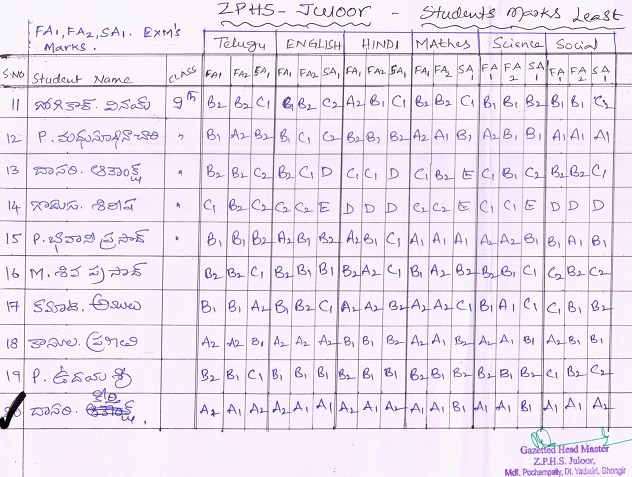 ZPHS - Juloor - Students Marks Least
FA1, FA2, SA1. EXM's
Marks.
Telugu ENGLISH HINDI MATHES Science Social
S.NO Student Name CLASS FA1 FA2 SA1 FA1 FA2 SA1 FA1 FA2 SA1 FA1 FA2 SA1 FA1 FA2 SA1 FA1 FA2 SA1
11 వినయ్ 9th B2 B2 C1 B2 C2 A2 B1 C1 B2 B2 C1 B1 B1 B2 B1 B1 C2
12 P. మధుసూధనాచారి " B1 A2 B2 B1 C1 C2 B2 B1 B2 A2 A1 B1 A2 B1 B1 A1 A1 A1
13 దాసరి. " B2 B2 C2 B2 C1 D C1 C1 D C1 B2 E C1 B1 C2 B2 B2 C1
14 శిరీష " C1 B2 C2 C2 C2 E D D D C2 C2 E C1 C1 E D D D
15 P. భవాని ప్రసాద్ " B1 B1 B2 A2 B1 B2 A2 B1 C1 A1 A1 A1 A2 A2 B1 B1 A1 B1
16 M. శివ ప్రసాద్ B2 B2 C1 B2 B1 B1 B2 A2 C1 B1 A2 B2 B2 B2 C1 C2 B2 C2
17 అములు B1 B1 A2 B1 B2 C1 A2 A2 B2 A2 A2 C1 B1 A1 C1 C1 B1 B2
18 కావలి. ప్రగతి A2 A2 B1 A2 A2 A2 B1 B1 B2 A2 A1 B2 A2 A1 B1 A2 B1 B1
19 P. ఉదయ శ్రీ B2 B1 C1 B1 B1 B1 B2 B1 B1 B2 B1 B2 B2 B1 B2 C1 B2 C2
దాసరి. కీర్తి A2 A1 A2 A2 A1 A1 A2 A1 A2 A1 A1 B1 A1 A1 B1 A1 A1 A2
Gazetted Head Master
Z.P.H.S. Juloor,
Mdl. Pochampally, Dt. Yadadri, Bhongir